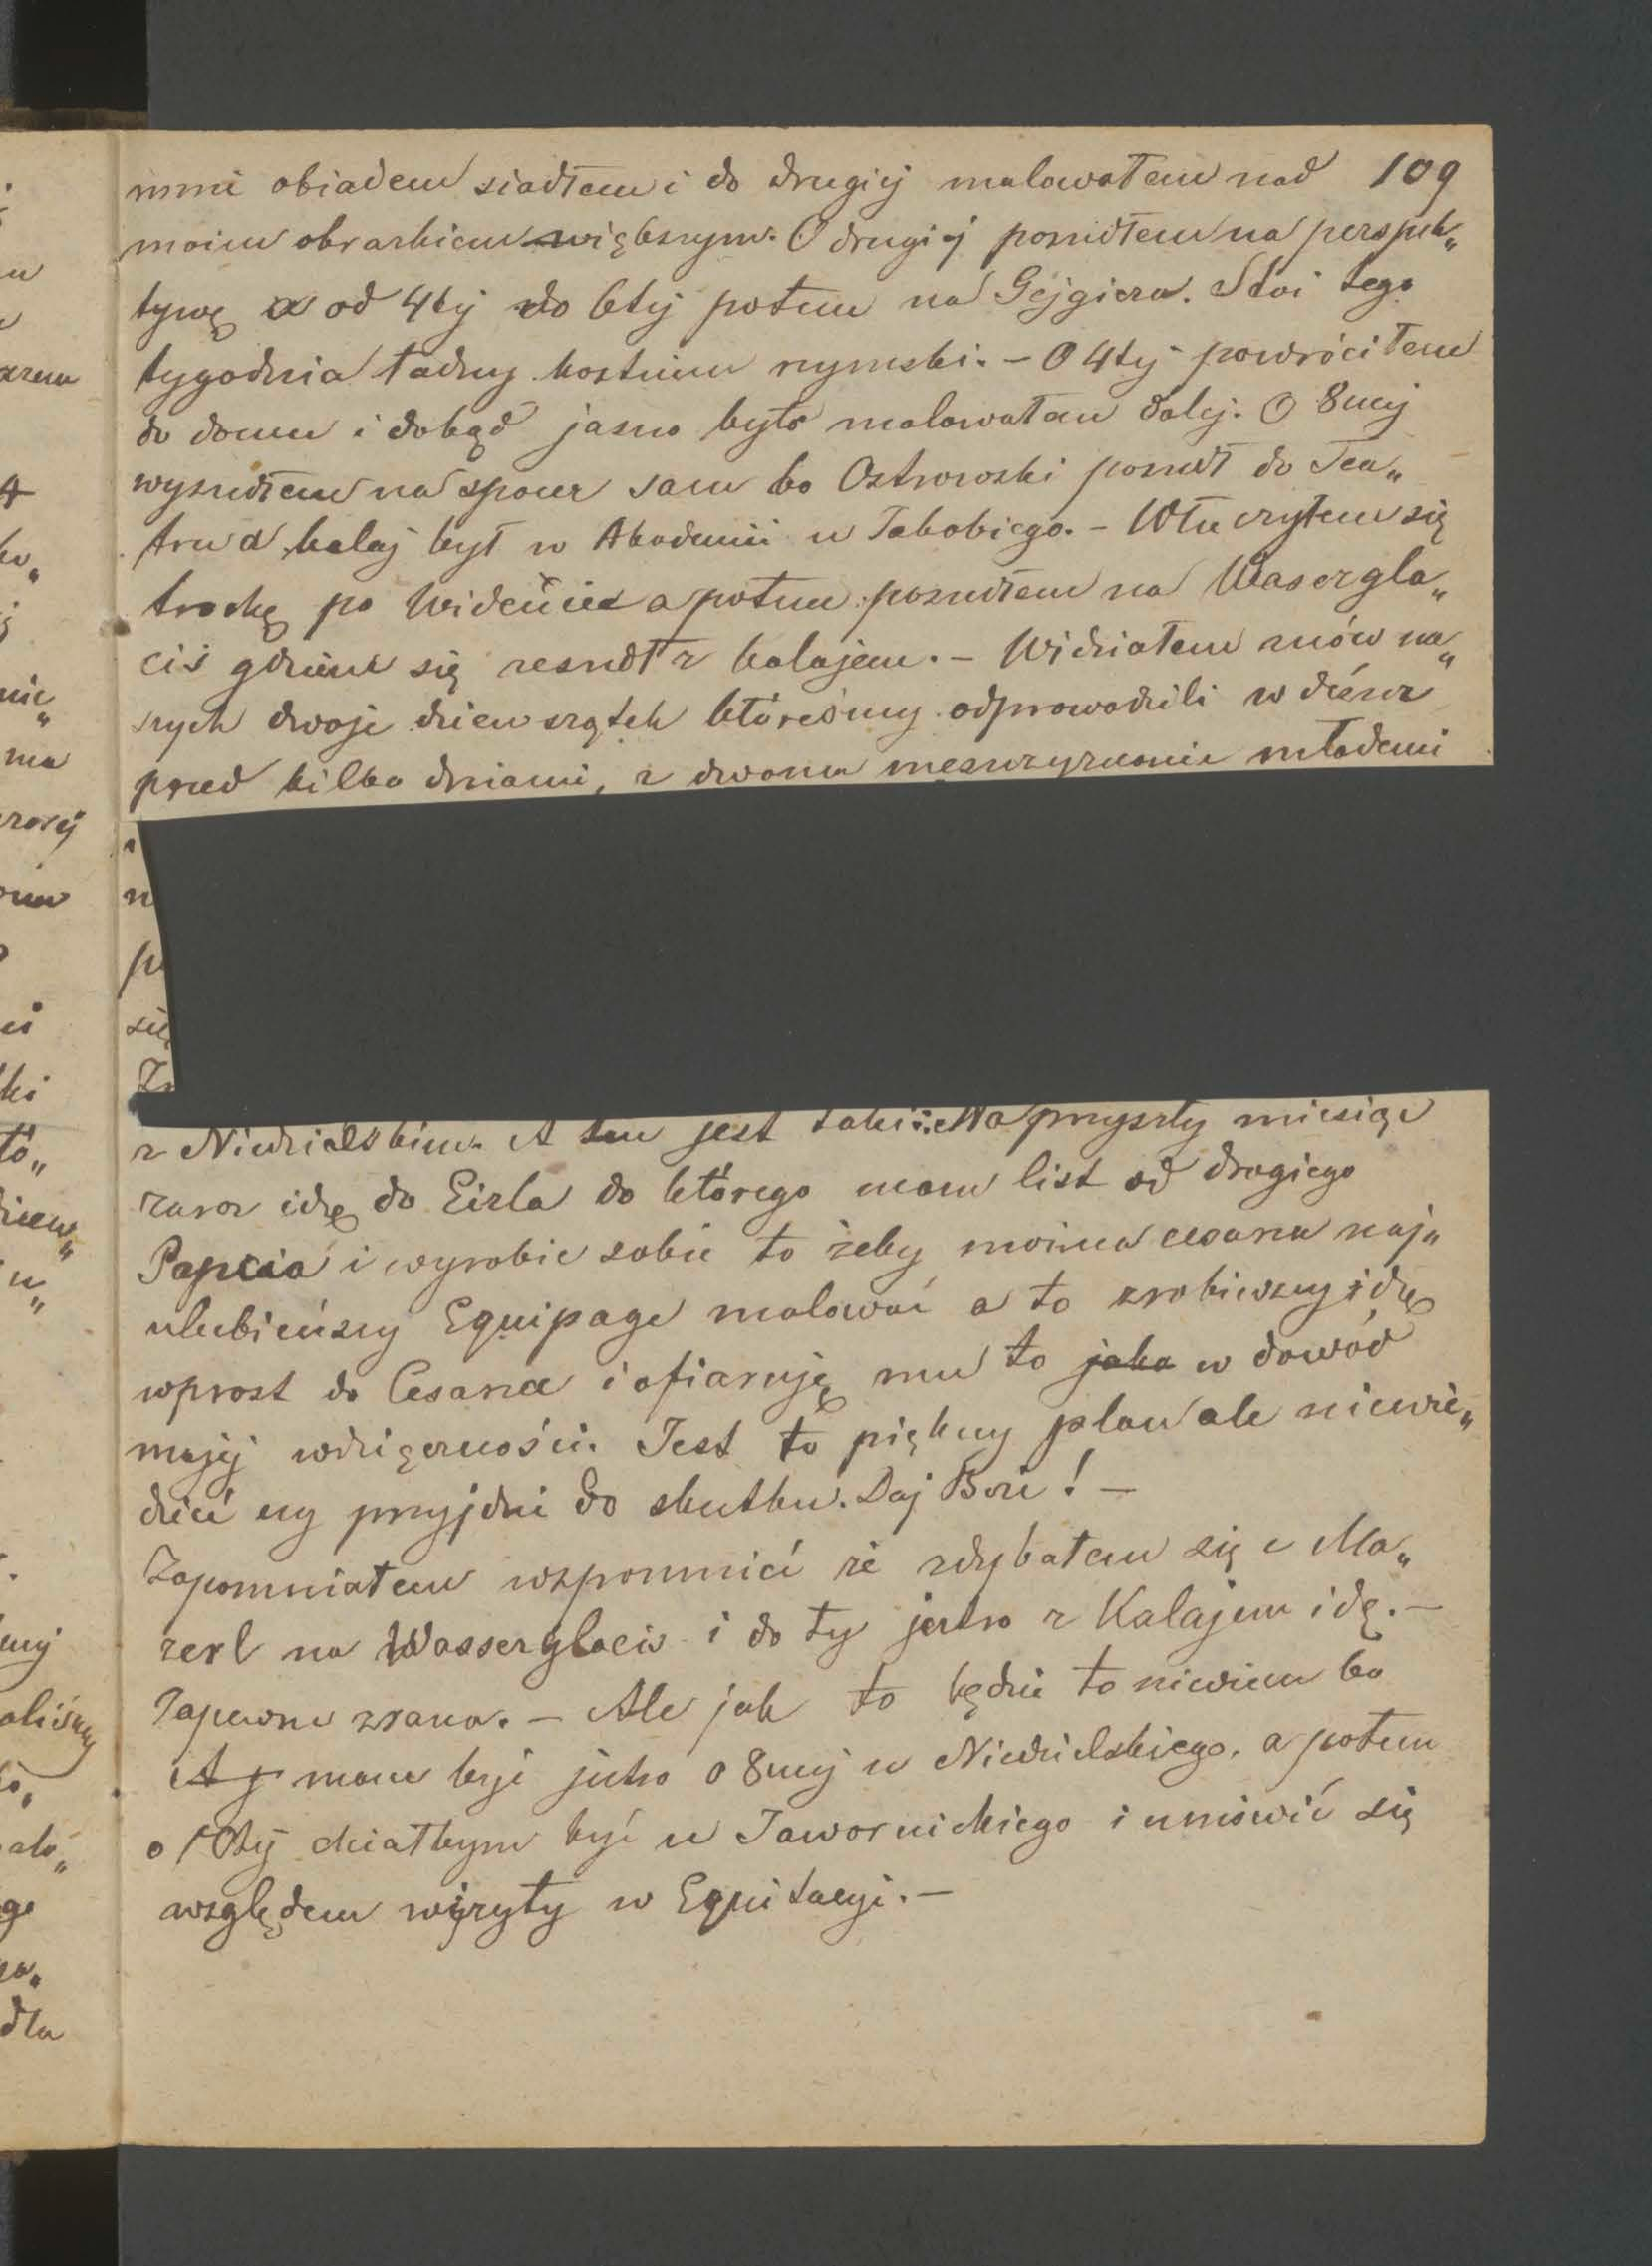 mmi obiadem siadłem i do drugiej malowałem nad 109
moim obrazkiem większym. O drugiej poszedłem na perspek„
tywę a od 4tej do 6tej potem na Gejgiera. Stoi tego
tygodnia ładny kostium rzymski. – O 4tej powróciłem
do domu i dokąd jasno było malowałem dalej. O 8mej
wyszedłem na spacer sam bo Ostrowski poszedł do Tea„
tru a kalaj był w Akademii u Jakobiego. – Włuczyłem się
trochę po Wideniu a potem poszedłem na Wasergla„
cis gdziem się zeszedł z kalajem. – Widziałem znów na„
szych dwoje dziewczątek któreśmy odprowadzili w deszcz
przed kilko dniami, z dwoma mężczyznami młodemi
n
p
się
z Niedzielskim. A ten jest taki: Na przyszły miesiąc
zaraz idę do Eizla do którego mam list od drogiego
Papcia i wyrobie sobie to żeby można cesarza naj„
ulubieńszy Equipage malować a to zrobiwszy idę
wprost do Cesarza i ofiaruję mu to jako w dowód
mojej wdzięczności. Jest to piękny plan ale niewie„
dzieć czy przyjdzie do skutku. Daj Boże! –
Zapomniałem wspomnieć że zdybałem się z Ma„
zerl na Wasserglacis i do tej jutro z Kalajem idę. –
Zapewne zrana. – Ale jak to będzie to niewiem bo
A j mam być jutro o 8mej u Niedzielskiego, a potem
o 10tej chciałbym być u Jawornickiego i umówić się
względem wizyty w Equitacyi. –